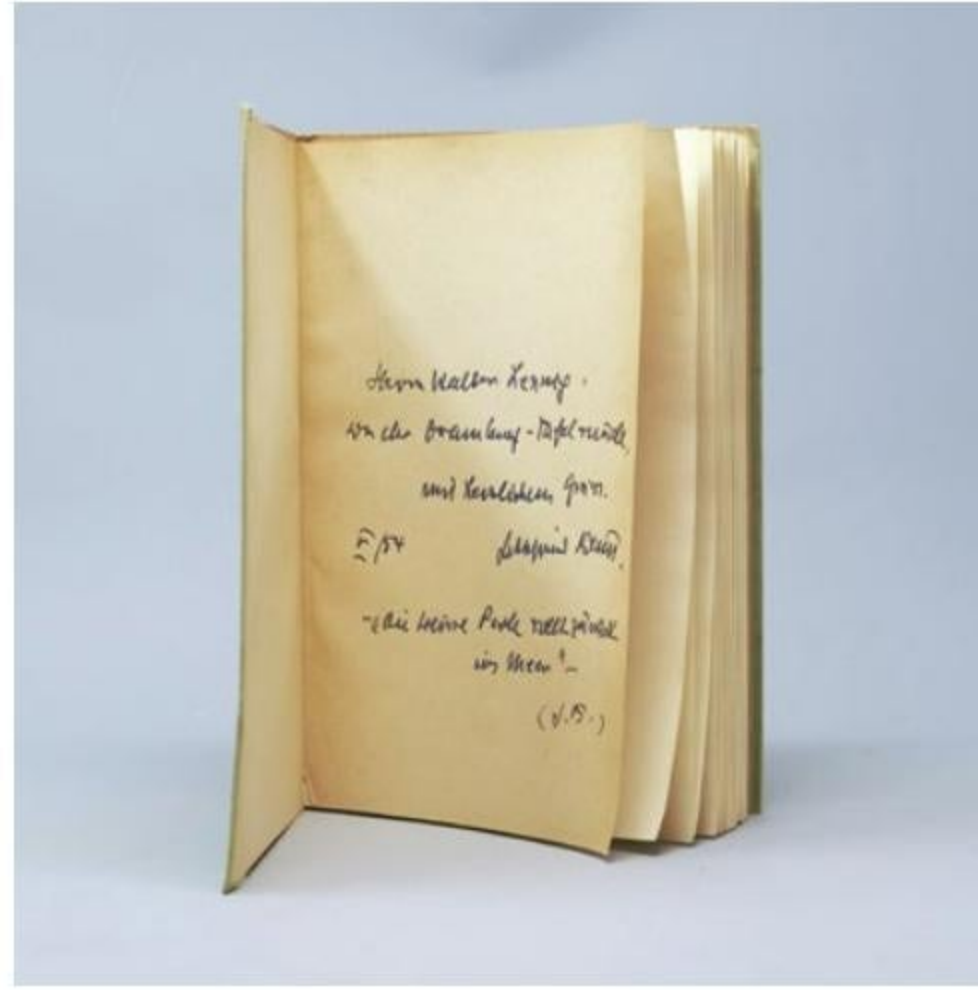 Herrn Walter Lennig.
von der Brandung-Tafelrunde,
mit herzlichem Gruss.
V/54
Gottfried Benn.
"die weisse Perle rollt zurück
ins Meer"-
(G.B.)